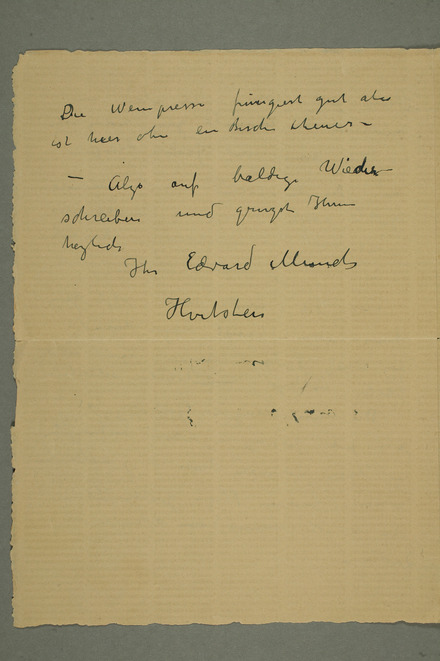 Die Weinpresse fungiert gut aber
ist hier ohne ein Bischen theuer –
– Also auf baldige Wieder
schreiben und grüsst Ihnen
herzlich
Ihr Edvard Munch
Hvitsten